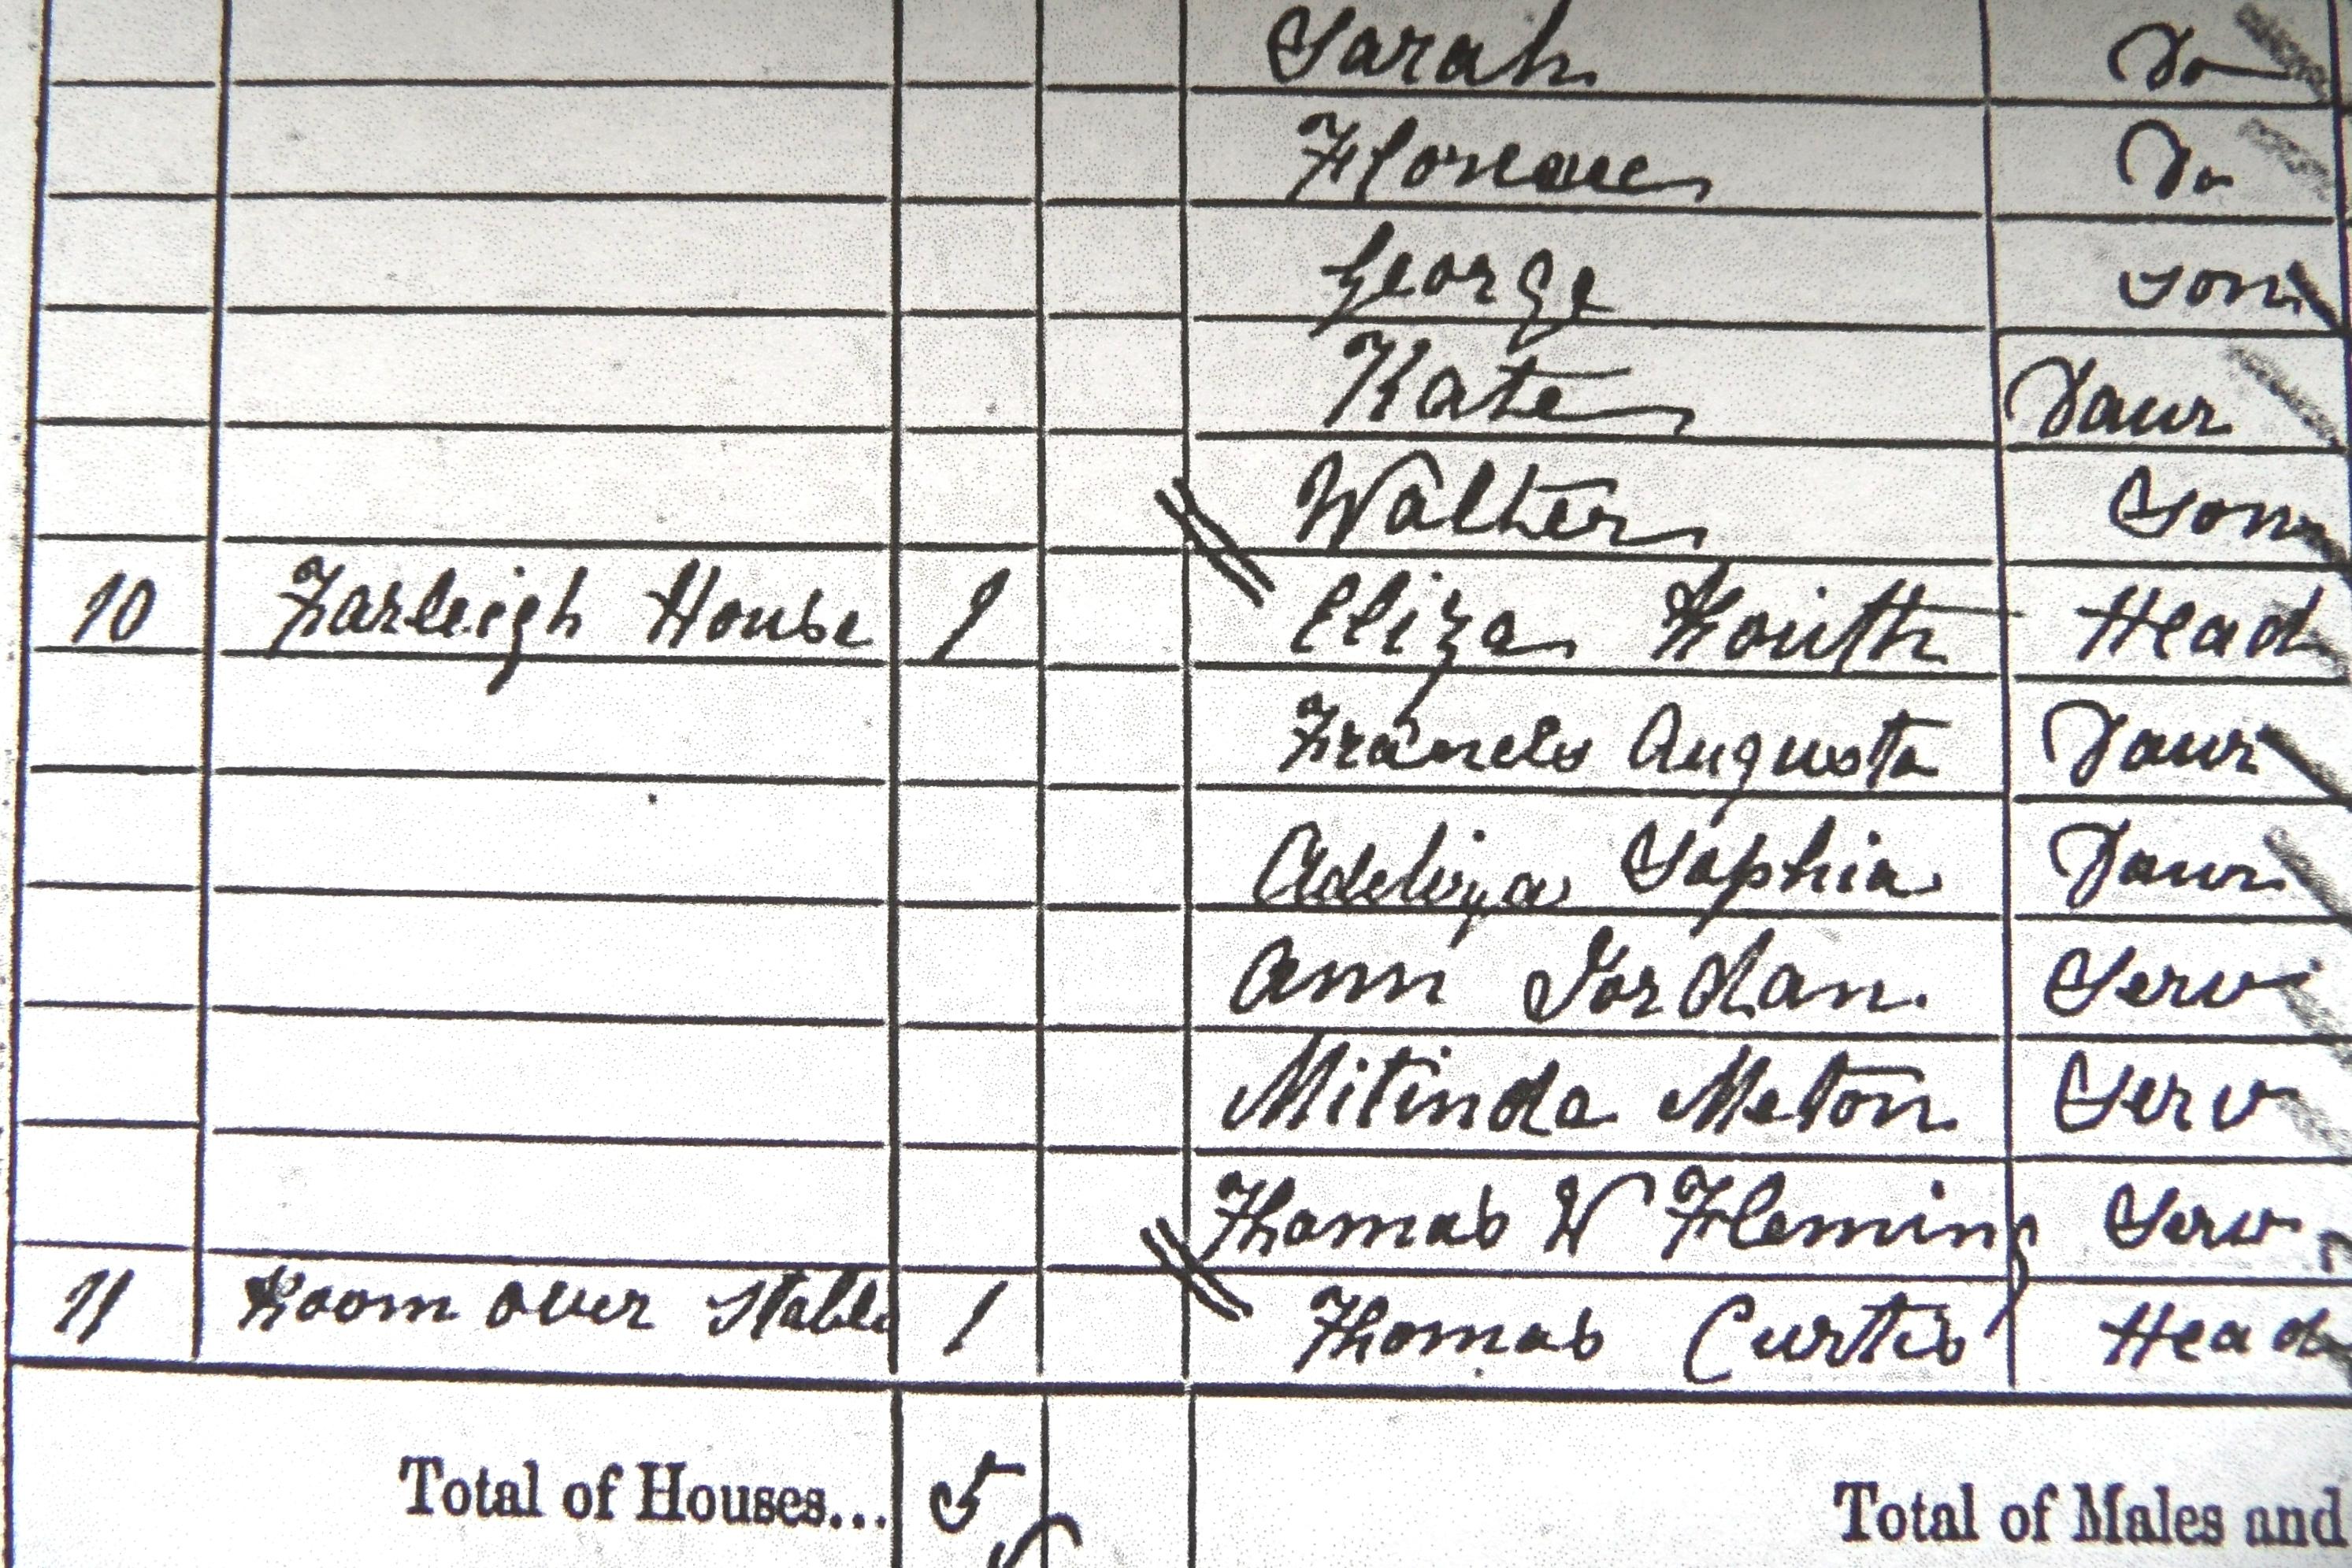 Sarah Do
Florence Do
George Son
Kate Daur
Walter Son
10 Farleigh House 1 Eliza Head
Francis Augusta Daur
Adeliza Sophia Daur
Ann Jordan Serv
Mitinda Meton Serv
Thomas W Fleming Serv
11 Room over Stable 1 Thomas Curtis Head
Total of Houses... 5
Total of Males and